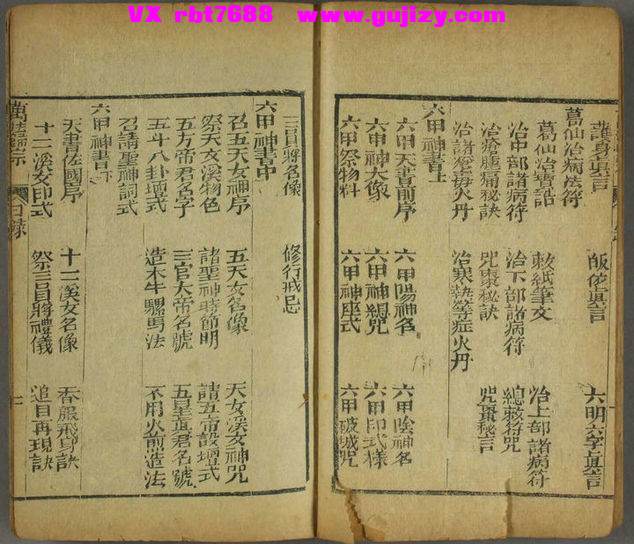 VX rbt7688 www.gujizy.com
護身真言 皈依真言 六明六字真言
葛仙治病法符
葛仙治寶誥 敕紙筆文 治上部諸病符
治中部諸病符 治下部諸病符 總敕符咒
治瘡腫痛秘訣 咒棗秘訣 咒棗秘言
治諸瘡毒火丹 治寒熱等症火丹
六甲神書上
六甲天書前序 六甲陽神名 六甲陰神名
六甲神大像 六甲神總咒 六甲印式樣
六甲祭物料 六甲神座式 六甲破城咒
三員將名像 修行戒忌
六甲神書中
召五天女神序 五天女名像 天女溪女神咒
祭天女溪物色 諸聖神時節明 請五帝設壇式
五方帝君名字 三官大帝名號 五星真君名號
五斗八卦壇式 造木牛騾馬法 不用火煎造法
召請聖神詞式
六甲神書下
天書佐國序 十二溪女名像 吞服飛身訣
十二溪女印式 祭三員將禮儀 追目再現訣
萬法歸宗 目錄